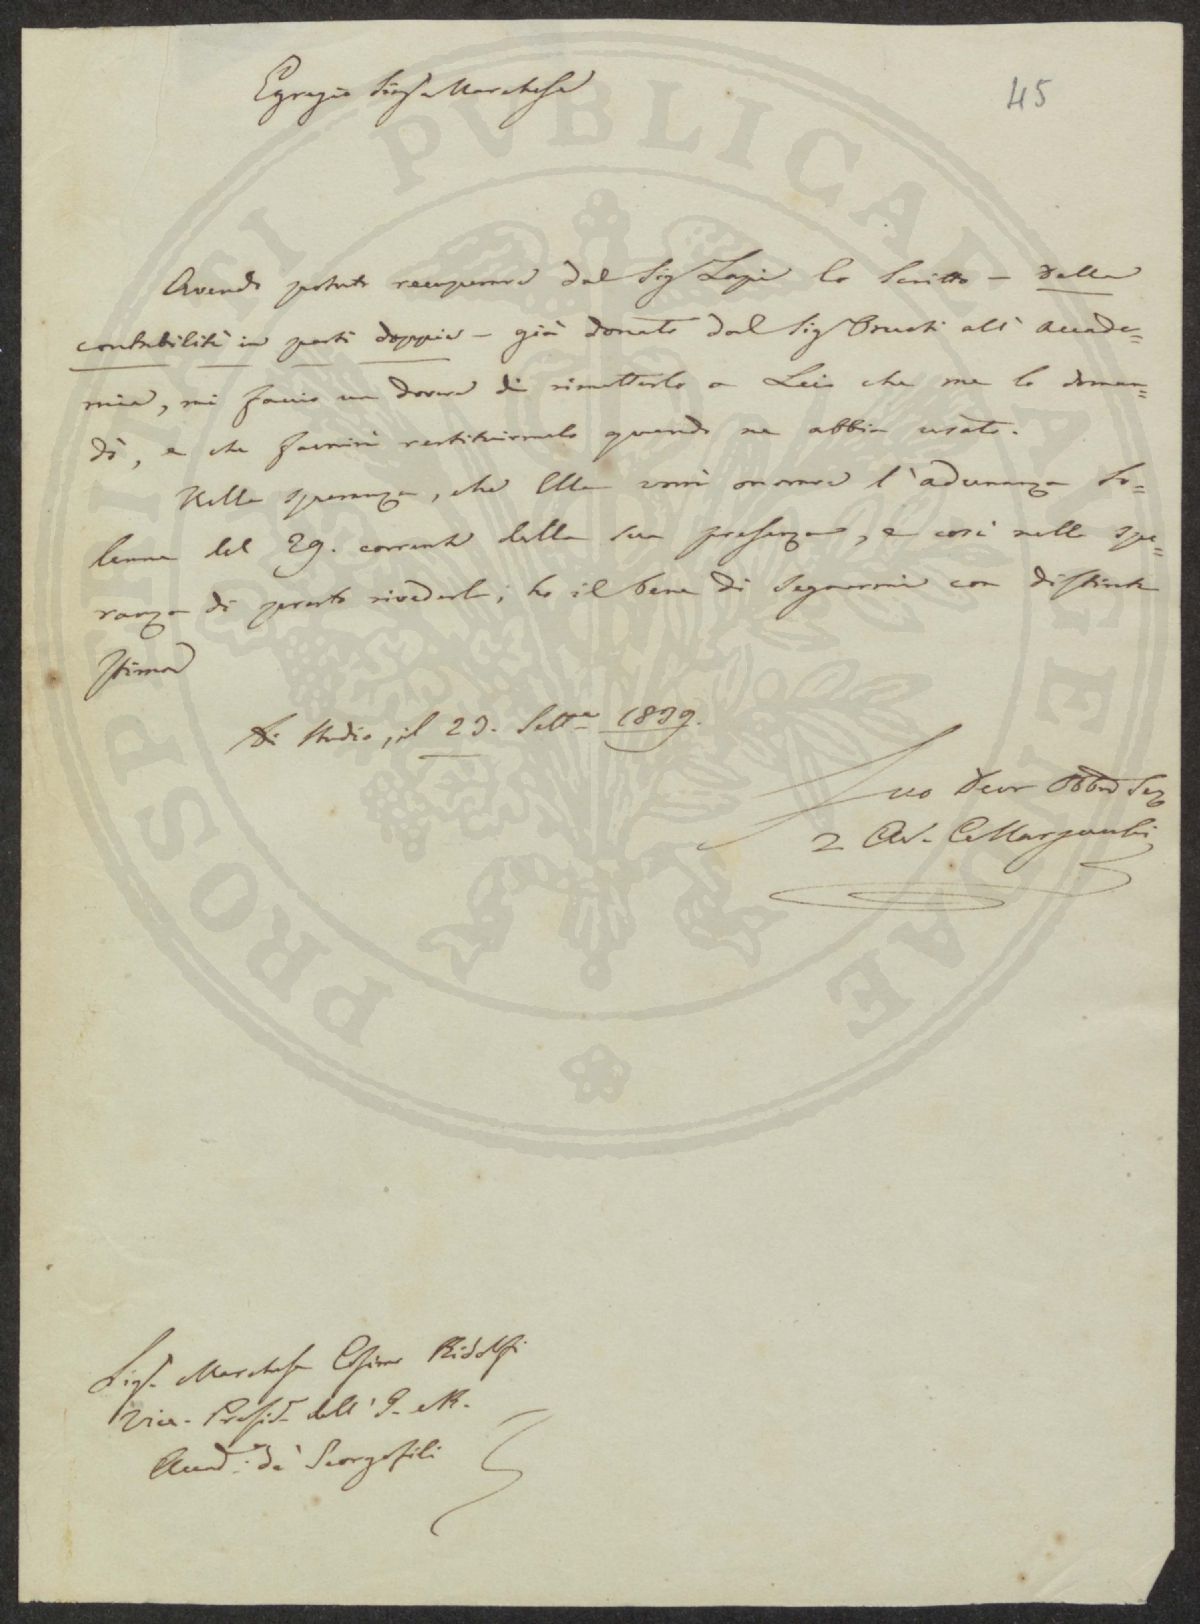 45
Egregio Sig.r Marchese
Avendo potuto recuperare dal Sig Lapi lo scritto – della
contabilità in parti doppie – già donato dal Sig Brucati all' Accade=
mia, mi faccio un dovere di rimetterlo a Lei che me lo doman=
dò, e che favorirà restituirmelo quando ne abbia usato.
Nella speranza, che Ella vorrà onorare l'adunanza So=
lenne del 29. corrente della sua presenza, e così nella spe=
ranza di presto rivederla; ho il bene di segnarmi con distinta
stima
Di Studio, il 23. Sett.e 1839.
Suo Devr Obbmo
Av.
Sig.r Marchese Cosimo Ridolfi
Vice-Presid.e dell' I. e R.
Accad.a de' Georgofili
PROSPERITATI PVBLICAE AVGENDAE